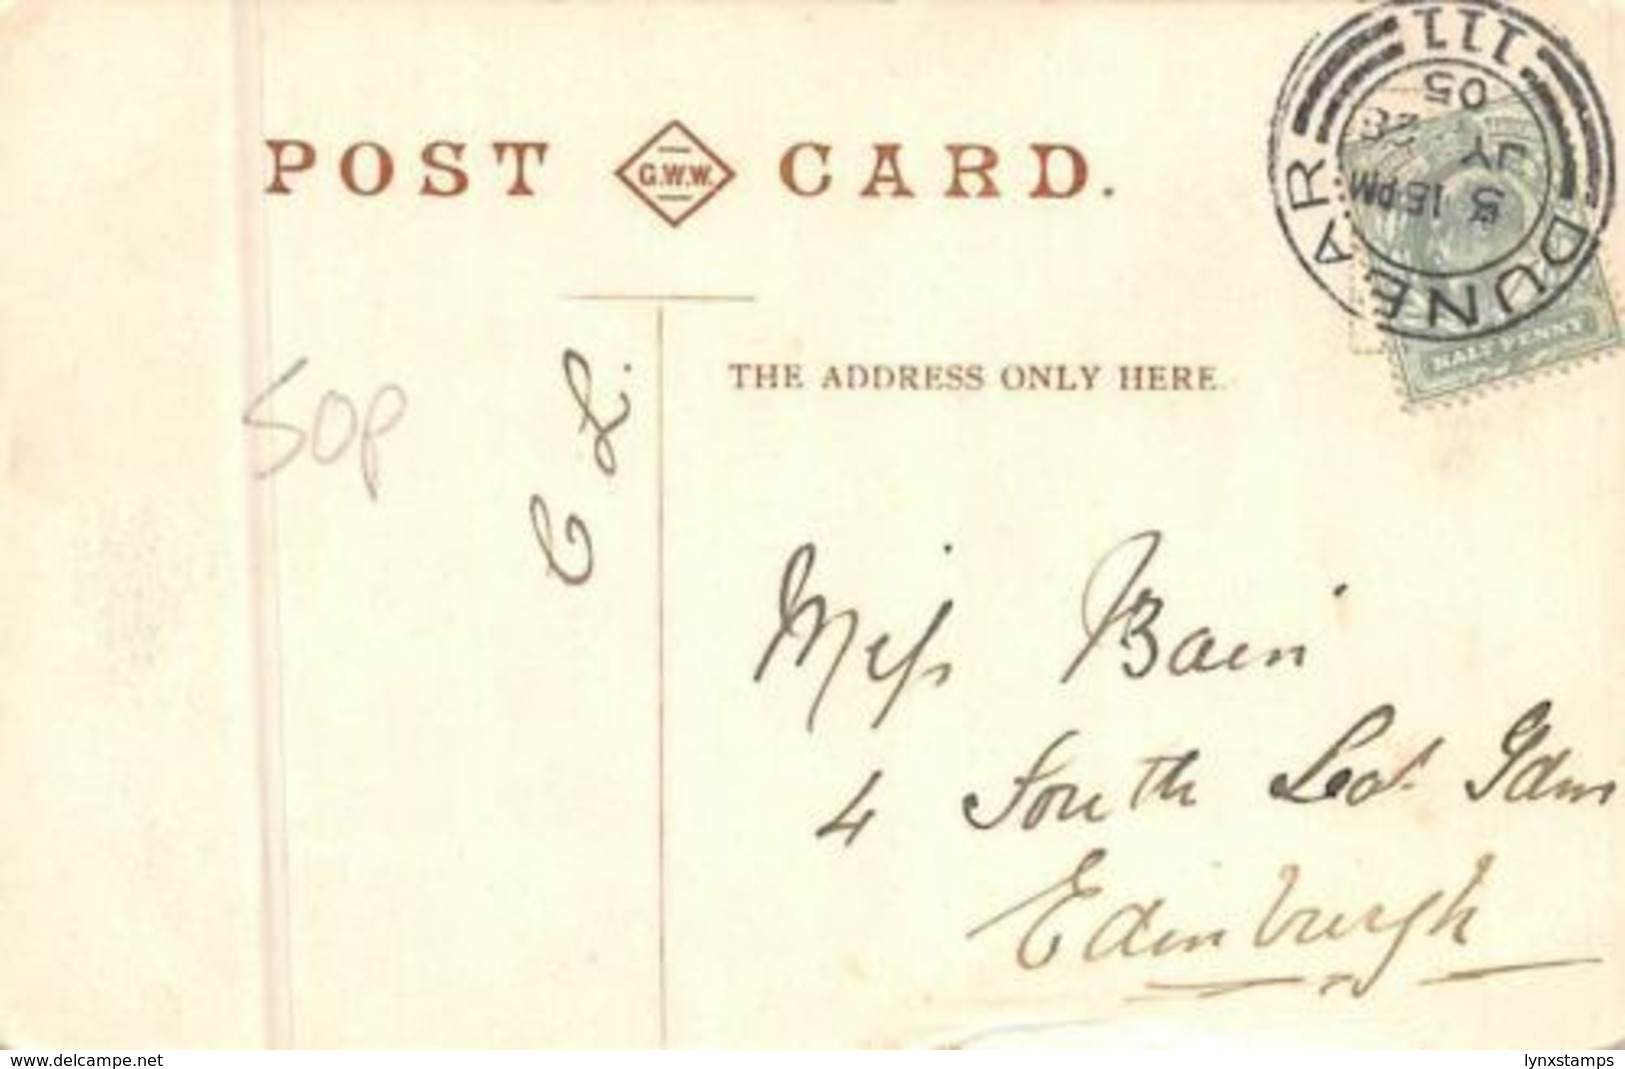 POST G.W.W. CARD.
THE ADDRESS ONLY HERE.
50p
C L.
Miss Bain
4 South Lod. Gdns
Edinburgh
DUNBAR
5 15 PM
JY 28
05
111
HALF PENNY
www.delcampe.net
lynxstamps